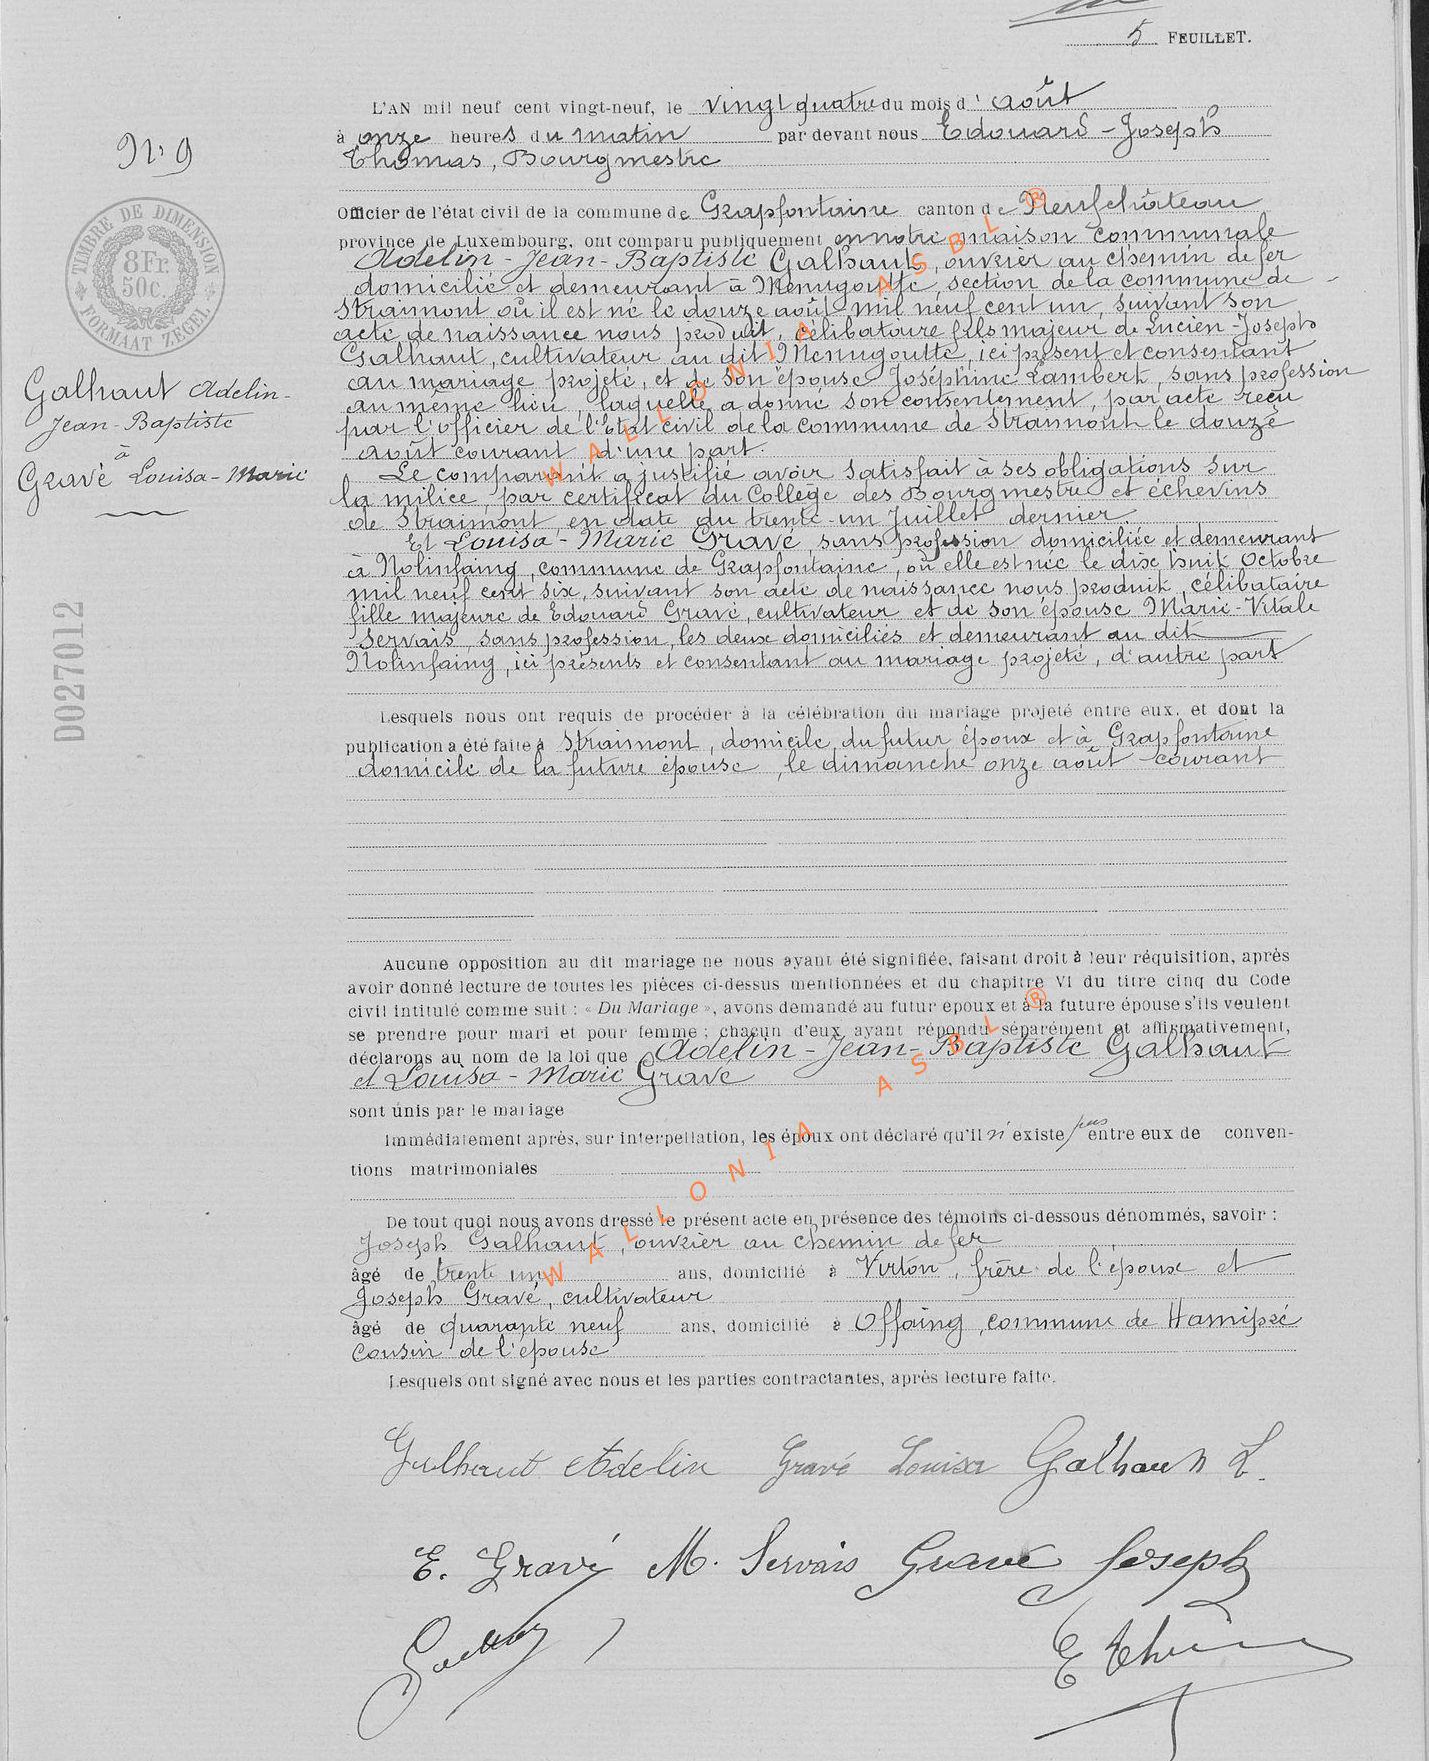 5 FEUILLET.
L'AN mil neuf cent vingt-neuf, le vingt quatre du mois d'août
à onze heures du matin par devant nous Edouard-Joseph
Thomas, Bourgmestre
Officier de l'état civil de la commune de Grapfontaine canton de Neufchâteau
province de Luxembourg, ont comparu publiquement en notre maison communale
Adelin-Jean-Baptiste Galhaut, ouvrier au chemin de fer
domicilié et demeurant à Menugoutte, section de la commune de
Straimont où il est né le douze août mil neuf cent un, suivant son
acte de naissance nous produit, célibataire fils majeur de Lucien-Joseph
Galhaut, cultivateur au dit Menugoutte, ici présent et consentant
au mariage projeté, et de son épouse Joséphine Lambert, sans profession
au même lieu, laquelle a donné son consentement, par acte reçu
par l'officier de l'Etat civil de la commune de Straimont le douze
août courant d'une part.
Le comparant a justifié avoir satisfait à ses obligations sur
la milice, par certificat du Collège des Bourgmestre et échevins
de Straimont en date du trente-un Juillet dernier
Et Louisa-Marie Gravé, sans profession domiciliée et demeurant
à Nolinfaing, commune de Grapfontaine, où elle est née le dix huit Octobre
mil neuf cent six, suivant son acte de naissance nous produit, célibataire
fille majeure de Edouard Gravé, cultivateur et de son épouse Marie-Vitale
Servais, sans profession, les deux domiciliés et demeurant au dit
Nolinfaing, ici présents et consentant au mariage projeté, d'autre part
Lesquels nous ont requis de procéder à la célébration du mariage projeté entre eux, et dont la
publication a été faite à Straimont, domicile du futur époux et à Grapfontaine
domicile de la future épouse, le dimanche onze août courant
Aucune opposition au dit mariage ne nous ayant été signifiée, faisant droit à leur réquisition, après
avoir donné lecture de toutes les pièces ci-dessus mentionnées et du chapitre VI du titre cinq du Code
civil intitulé comme suit : « Du Mariage », avons demandé au futur époux et à la future épouse s'ils veulent
se prendre pour mari et pour femme ; chacun d'eux ayant répondu séparément et affirmativement,
déclarons au nom de la loi que Adelin-Jean-Baptiste Galhaut
et Louisa-Marie Gravé
sont unis par le mariage
Immédiatement après, sur interpellation, les époux ont déclaré qu'il n'existe pas entre eux de conven-
tions matrimoniales
De tout quoi nous avons dressé le présent acte en présence des témoins ci-dessous dénommés, savoir :
Joseph Galhaut, ouvrier au chemin de fer
âgé de trente un ans, domicilié à Virton, frère de l'époux et
Joseph Gravé, cultivateur
âgé de quarante neuf ans, domicilié à Offaing, commune de Hamipré
cousin de l'épouse
Lesquels ont signé avec nous et les parties contractantes, après lecture faite.
Galhaut Adelin Gravé Louisa Galhaut L.
E. Gravé M. Servais Gravé Joseph
N° 9
TIMBRE DE DIMENSION
8 Fr.
50 c.
FORMAAT ZEGEL
Galhaut Adelin-
Jean-Baptiste
à
Gravé Louisa-Marie
D027012
WALLONIA ASBL ®
WALLONIA ASBL ®